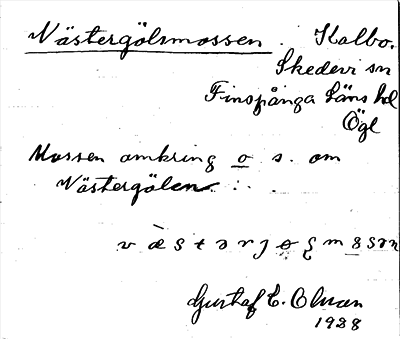 Västergölsmossen. Kalbo.
Skedevi sn
Finspånga läns hd
Ögl
Mossen omkring o s. om
Västergölen.
Gustaf E. Olsson
1928